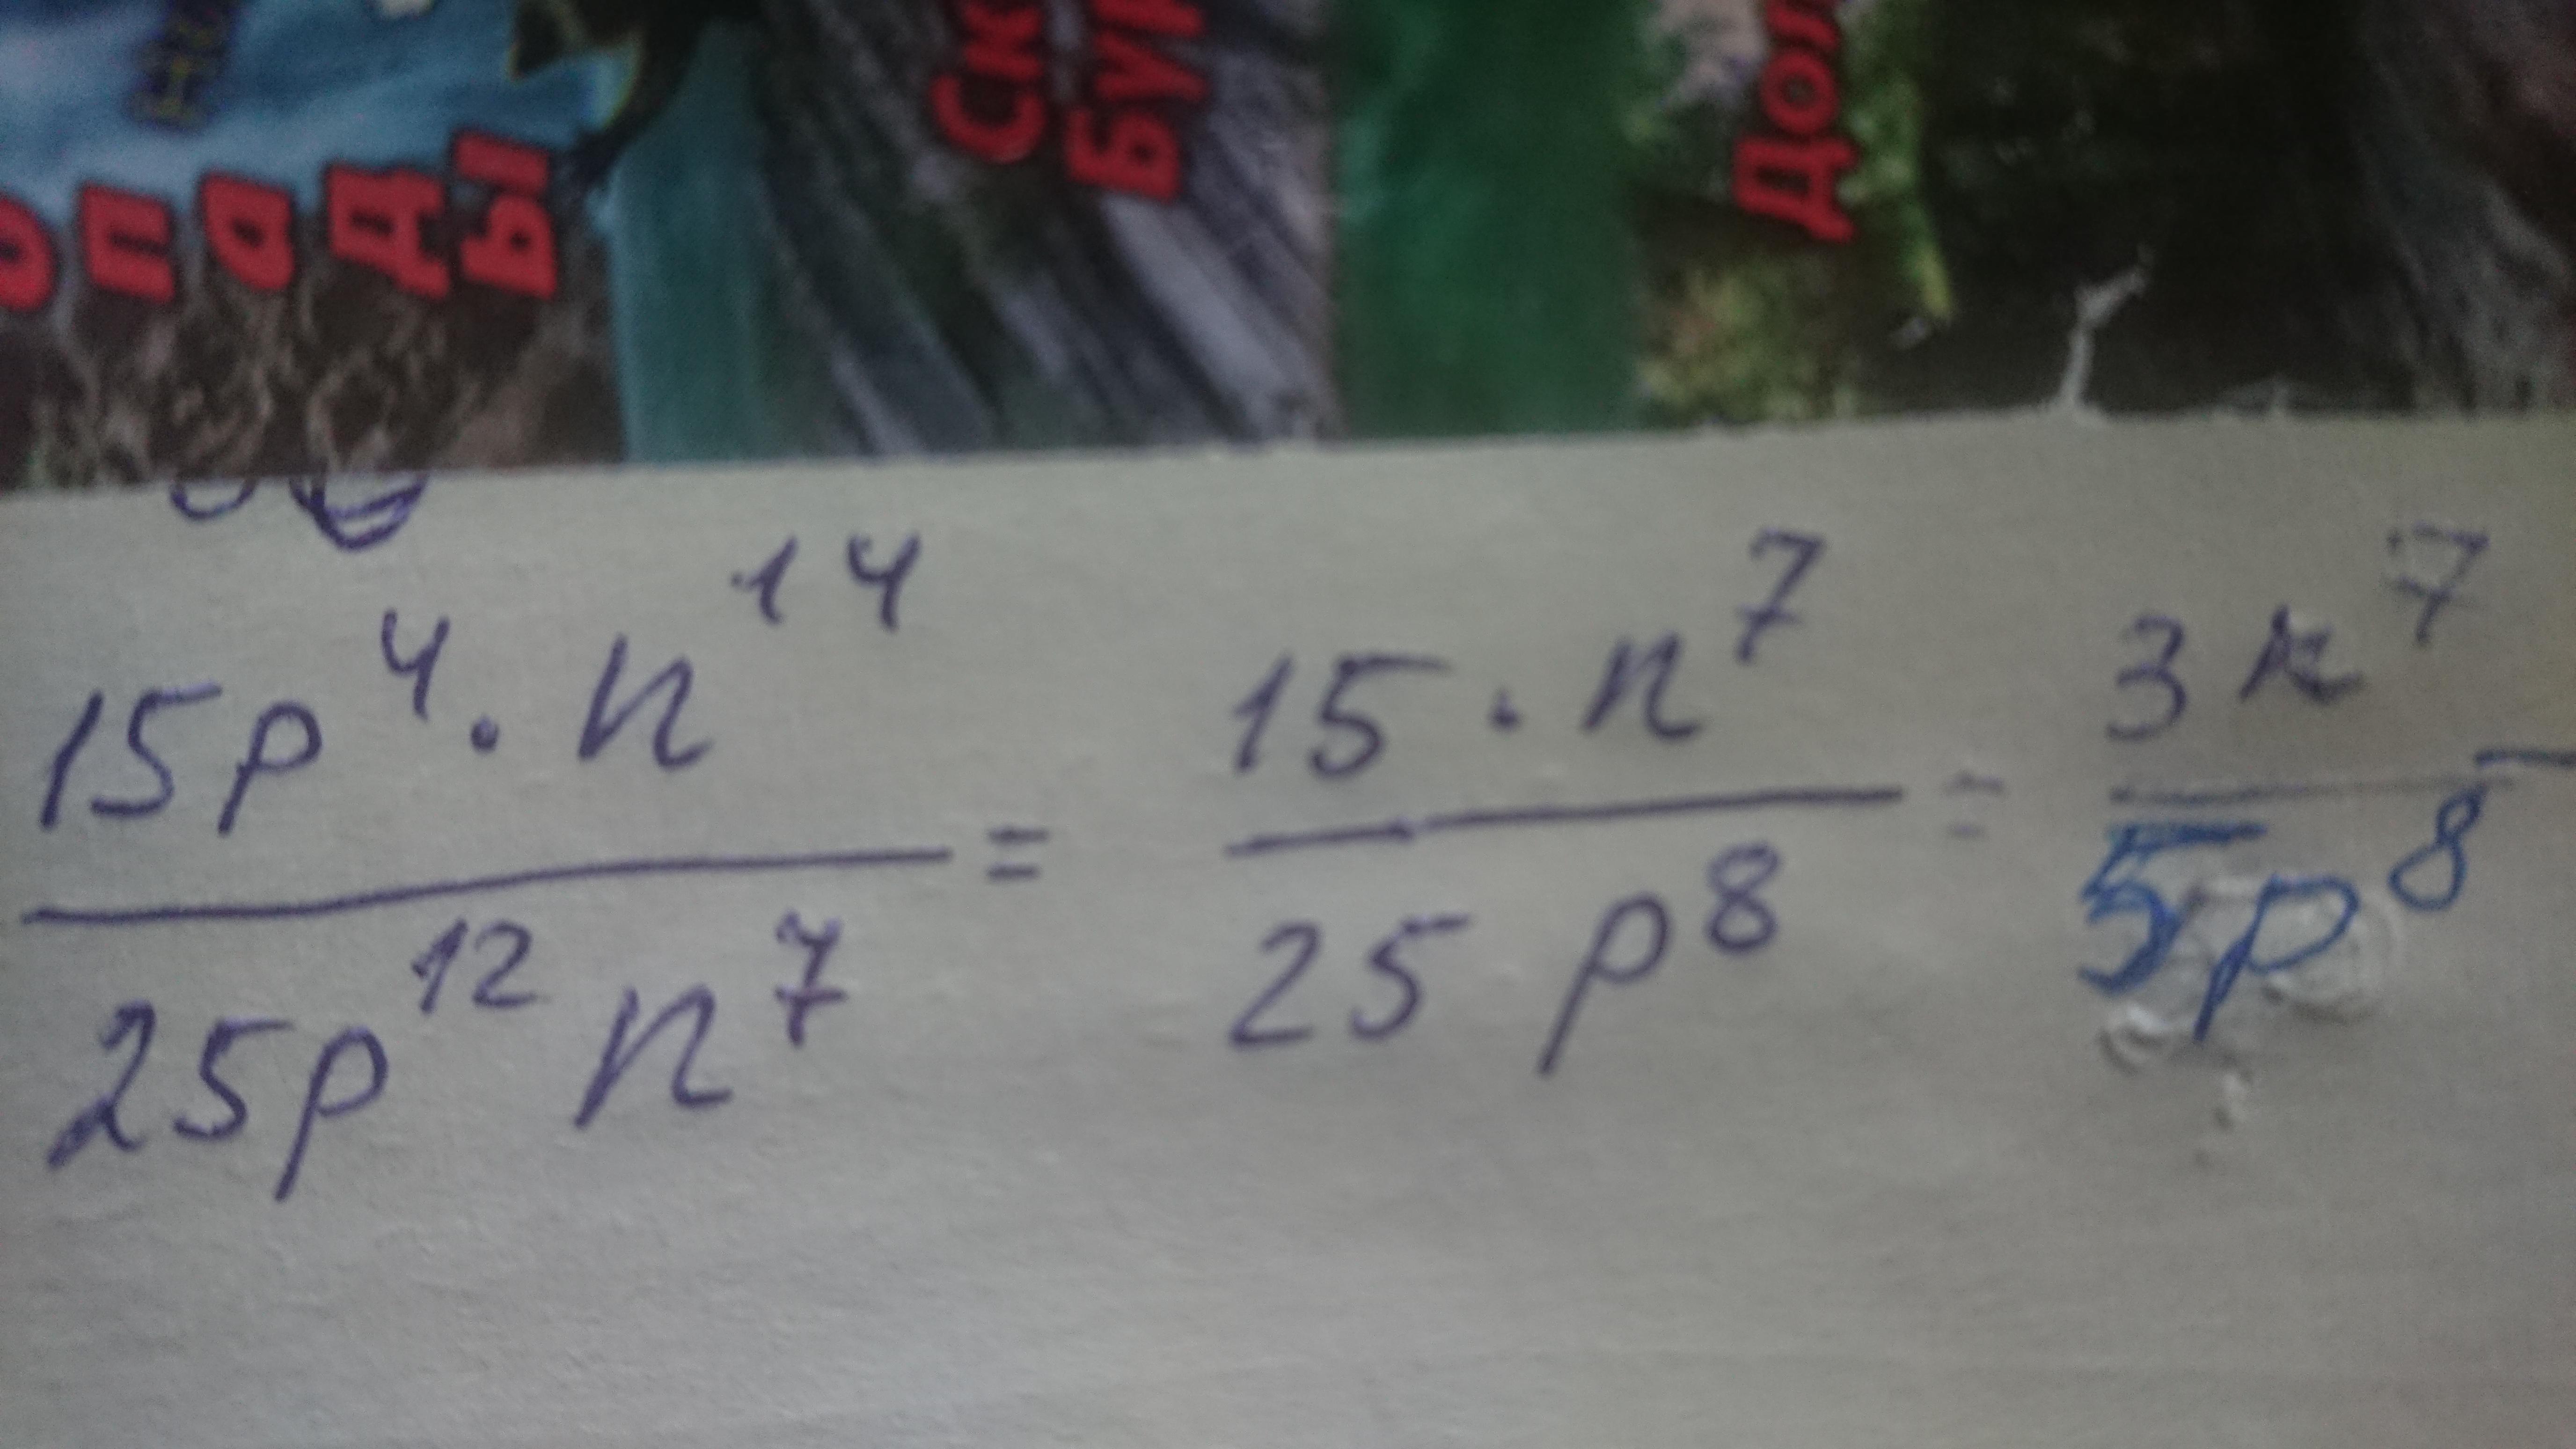 опады
Ск
Бур
Дол
15p⁴ · n¹⁴ / 25p¹² n⁷ = 15 · n⁷ / 25 p⁸ = 3n⁷ / 5p⁸